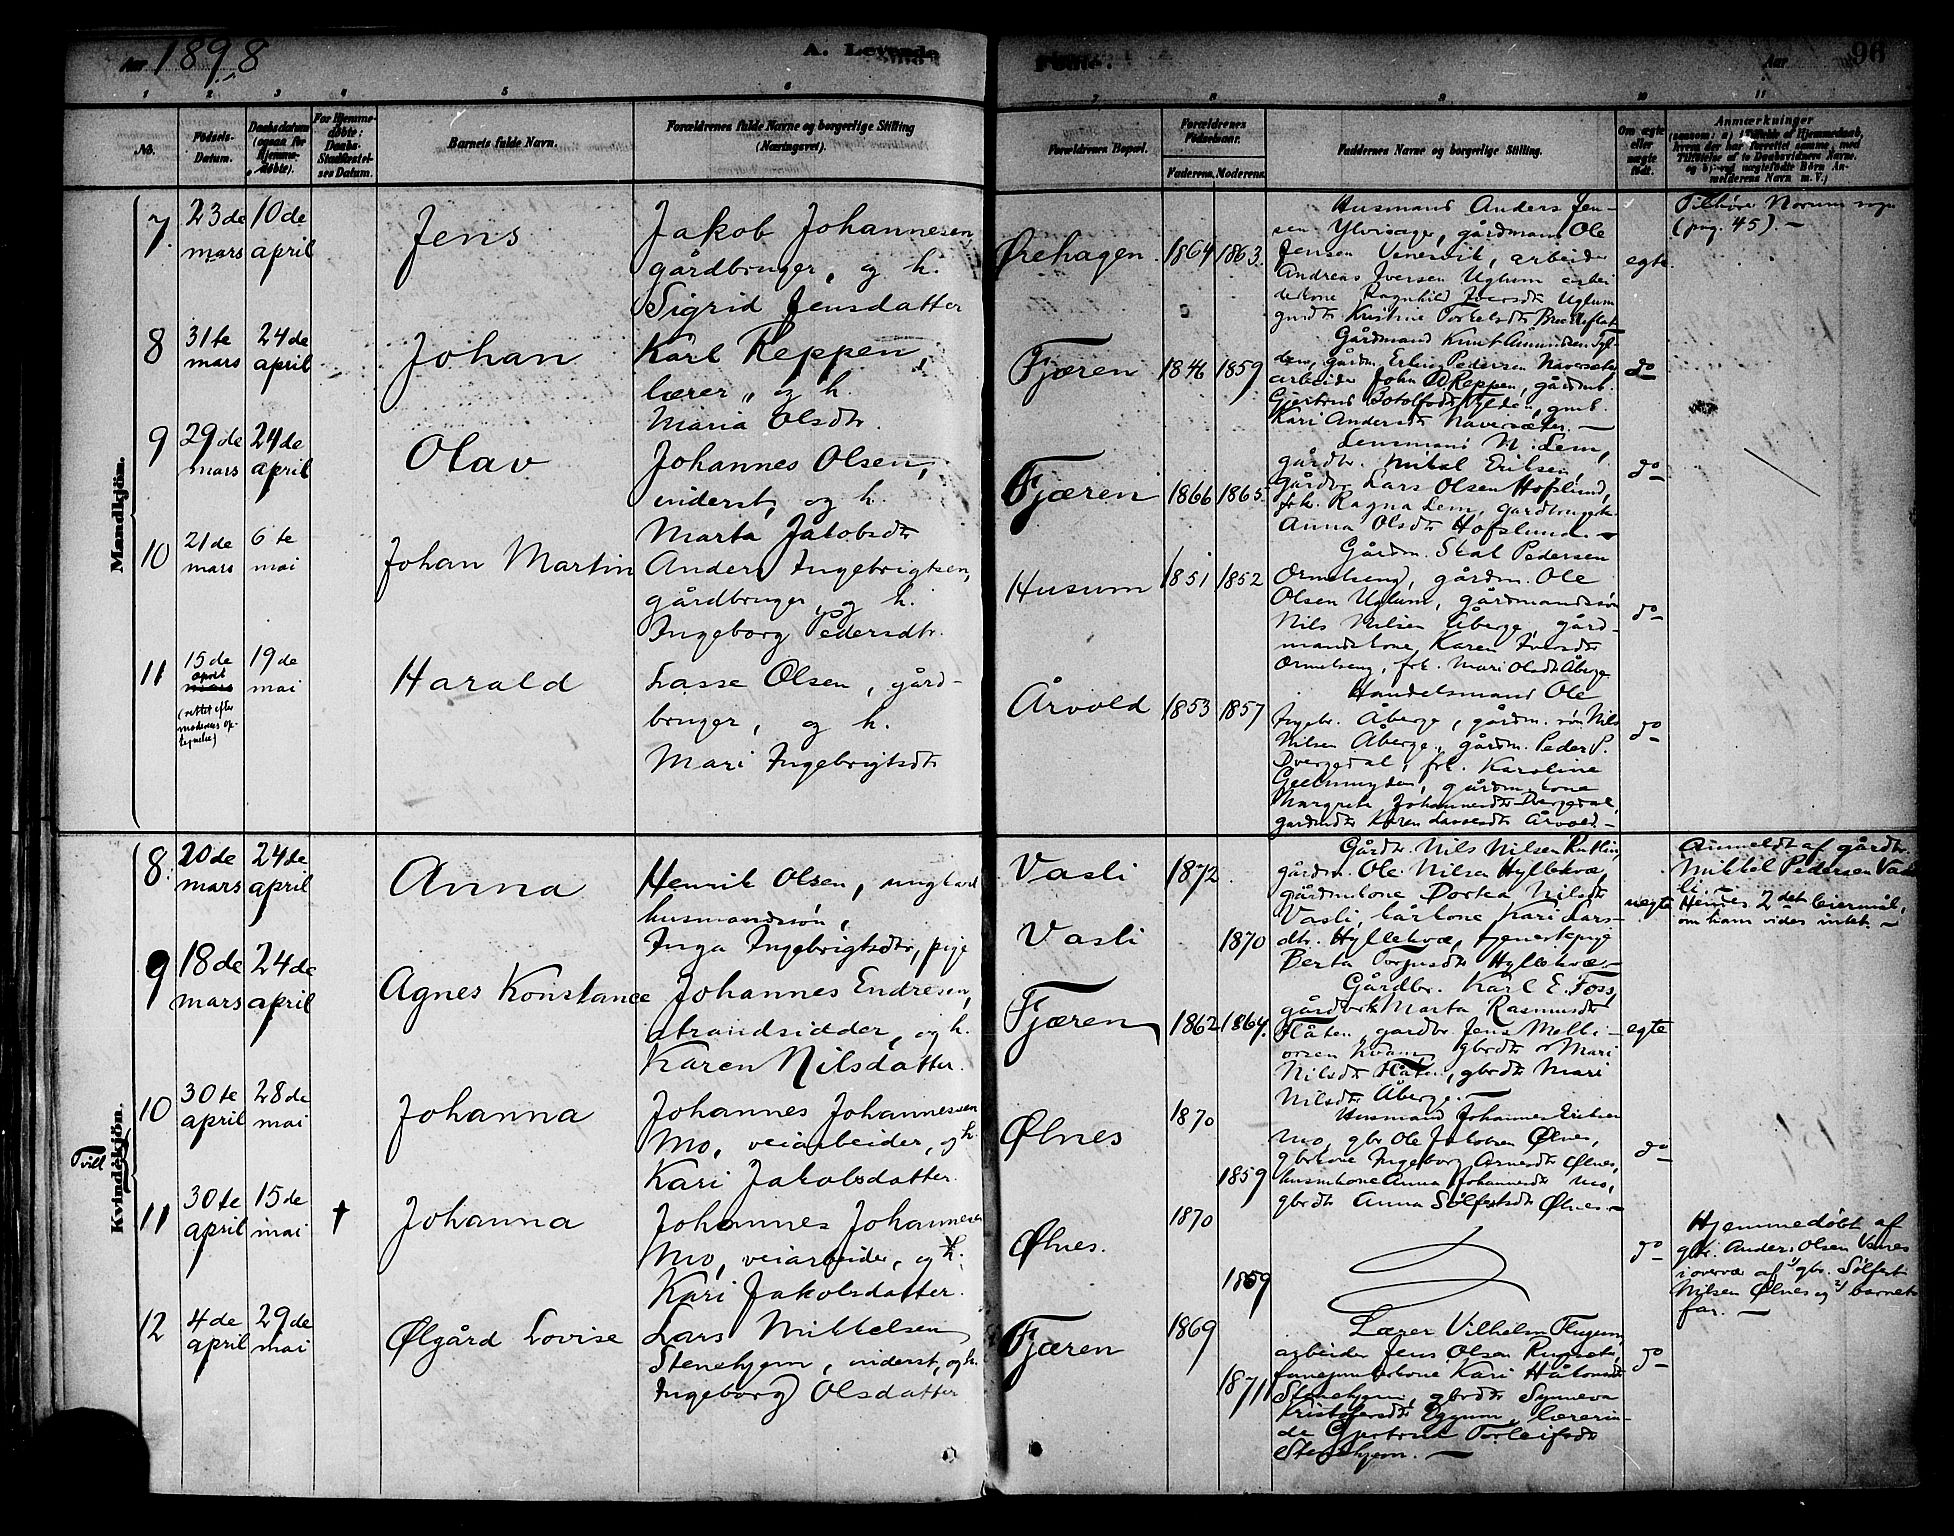 Aar 1898
A. Levende
Fødte.
Aar
96
1 2 3 4 5 6 7 8 9 10 11
No.
Fødsels-
Datum.
Daabsdatum
(ogsaa for
Hjemme-
døbte).
For Hjemme-
døbte:
Daabs-
Stadfæstel-
ses Datum.
Barnets fulde Navn.
Forældrenes fulde Navne og borgerlige Stilling
(Næringsvei).
Forældrenes Bopæl.
Forældrenes
Fødselsaar.
Faderens. Moderens.
Faddernes Navne og borgerlige Stilling.
Om ægte
eller
uægte
født.
Anmærkninger
Mandkjön.
7.
23de
mars
10de
april
Jens
Jakob Johannesen,
gårdbruger, og h.
Sigrid Jensdatter
Ørehagen.
1864
1863.
Husmand Anders Jen-
sen Ylvisager, gårdmand Ole
Jensen Venesvik, arbeider
Andreas Iversen Uglum arbei
derkone Ragnhild Iversdtr Uglum
egte.
Tilhøre Norum sogn
(pag. 45). —
8
31te
mars
24de
april
Johan
Karl Reppen,
lærer, og h.
Maria Olsdtr.
Fjæren
1846
1859
Gårdmand Knut Amundsen
gårdm. Erling Pedersen
arbeider John Reppen, gårdmk.
Kari Andersdtr Naversæter. —
do
9
29de
mars
24de
april
Olav
Johannes Olsen,
inderst, og h.
Marta Jakobsdtr
Fjæren
1866
1865.
Lensmand N. Lem,
gårdbr. Mikal Eriksen,
gårdbr Lars Olsen Hofslund,
frk. Ragna Lem, gårdbrugerk.
Anna Olsdtr Hofslund. —
do
10
21de
mars
6te
mai
Johan Martin
Anders Ingebrigtsen,
gårdbruger, og h.
Ingeborg Pedersdtr.
Husum
1851
1852
Gårdm. Skak Pedersen
Ormelseng, gårdm. Ole
Olsen Uglum, gårdmandssøn
Nils Nilsen Åberge, gård-
mandskone Karen Iversdtr
Ormelseng, frk. Mari Olsdtr Åberge
do
11
15de
april
mars
(rettet efter
moderens op-
tegnelse)
19de
mai
Harald
Lasse Olsen, gård-
bruger, og h.
Mari Ingebrigtsdtr
Årvold
1853
1857
Handelsmand Ole
Ingebr. Åberge, gårdm. søn Nils
Nilsen Åberge, gårdm. Peder P.
Dvergedal, frk. Karoline
Geelmuyden, gårdm.kone
Margreta Johannesdtr Dvergedal,
gårmdtr Karen Lassesdtr Årvold —
do
Kvindekjön.
8.
20de
mars
24de
april
Anna
Henrik Olsen, ungkarl
husmandssøn,
Inga Ingebrigtsdtr, pige
Vasli
Vasli
1872
1870
Gårdbr. Nils Nilsen Rutlin,
gårdm. Ole Nilsen Hyllekvæ,
gårdmkone Dortea Nilsdtr
Vasli, kårkone Kari Lars-
dtr. Hyllekvæ, tjenestepige
Berta Torgusdtr Hyllekvæ —
uegte
Anmeldt af gårdbr.
Mikkel Pedersen Vas
li. —
Hendes 2det leiermål,
om ham vides intet. —
9
18de
mars
24de
april
Agnes Konstance
Johannes Endresen,
strandsidder, og h.
Karen Nilsdatter.
Fjæren
1862
1864.
Gårdbr. Karl E. Foss,
gårdbrk Marta Rasmusdtr
Flåten, gårdbr. Jens Melki-
orsen Kvam, gbrdtr Mari
Nilsdtr Flåten, gbrdtr Mari
Nilsdtr Åberge. —
egte
Tvill
10
30te
april
28de
mai
Johanna
Johannes Johannessen
Mo, veiarbeider, og h.
Kari Jakobsdatter.
Ølnes
1870
1859
Husmand Johannes Eriksen
Mo, gbr Ole Jakobsen Ølnes,
gbrkone Ingeborg Arnesdtr Ølnes,
husmkone Anna Johannesdtr Mo,
gbrdtr Anna Sølfestsdtr Ølnes. —
do
11
30te
april
15de
mai
†
Johanna
Johannes Johannesen
Mo, veiarbeider, og h.
Kari Jakobsdatter.
Ølnes.
1870
1859
do
Hjemmedøbt af
gbr. Anders Olsen Vænes
i overvær af 1) gbr. Sølfest
Nilsen Ølnes og 2) barnets
far. —
12
4de
april
29de
mai
Ølgård Lovise
Lars Mikkelsen
Stenehjem, inderst, og h.
Ingeborg Olsdatter
Fjæren
1869
1871
Lærer Vilhelm Flugum,
arbeider Jens Olsen
kone Kari Håkonsdtr
Stenehjem, gbrdtr Synneva
Kristofersdtr Eggum, lærerin-
de Gjertrud Torleifsdtr
Stenehjem. —
do